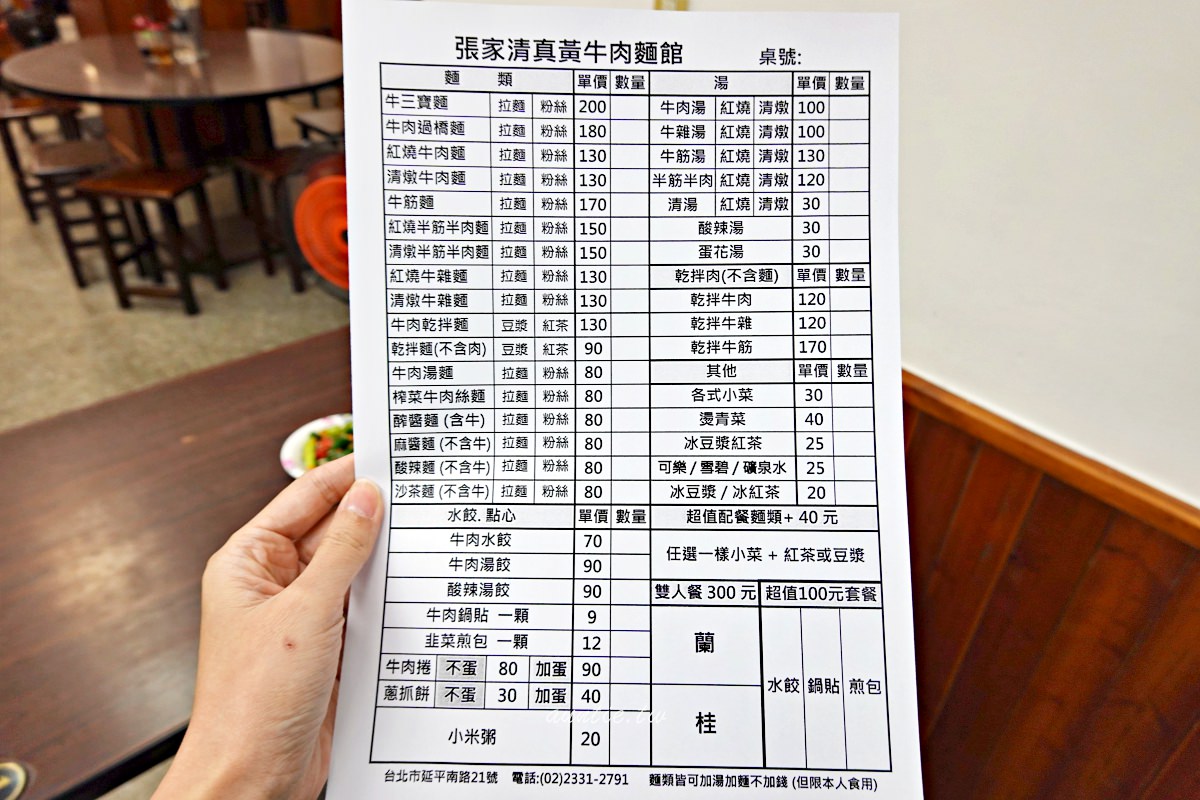 張家清真黃牛肉麵館 桌號:
麵 類 單價 數量
牛三寶麵 拉麵 粉絲 200
牛肉過橋麵 拉麵 粉絲 180
紅燒牛肉麵 拉麵 粉絲 130
清燉牛肉麵 拉麵 粉絲 130
牛筋麵 拉麵 粉絲 170
紅燒半筋半肉麵 拉麵 粉絲 150
清燉半筋半肉麵 拉麵 粉絲 150
紅燒牛雜麵 拉麵 粉絲 130
清燉牛雜麵 拉麵 粉絲 130
牛肉乾拌麵 豆漿 紅茶 130
乾拌麵(不含肉) 豆漿 紅茶 90
牛肉湯麵 拉麵 粉絲 80
榨菜牛肉絲麵 拉麵 粉絲 80
醡醬麵 (含牛) 拉麵 粉絲 80
麻醬麵 (不含牛) 拉麵 粉絲 80
酸辣麵 (不含牛) 拉麵 粉絲 80
沙茶麵 (不含牛) 拉麵 粉絲 80
水餃. 點心 單價 數量
牛肉水餃 70
牛肉湯餃 90
酸辣湯餃 90
牛肉鍋貼 一顆 9
韭菜煎包 一顆 12
牛肉捲 不蛋 80 加蛋 90
蔥抓餅 不蛋 30 加蛋 40
小米粥 20
湯 單價 數量
牛肉湯 紅燒 清燉 100
牛雜湯 紅燒 清燉 100
牛筋湯 紅燒 清燉 130
半筋半肉 紅燒 清燉 120
清湯 紅燒 清燉 30
酸辣湯 30
蛋花湯 30
乾拌肉(不含麵) 單價 數量
乾拌牛肉 120
乾拌牛雜 120
乾拌牛筋 170
其他 單價 數量
各式小菜 30
燙青菜 40
冰豆漿紅茶 25
可樂 / 雪碧 / 礦泉水 25
冰豆漿 / 冰紅茶 20
超值配餐麵類+ 40 元
任選一樣小菜 + 紅茶或豆漿
雙人餐 300 元 超值100元套餐
蘭
桂
水餃 鍋貼 煎包
台北市延平南路21號 電話:(02)2331-2791 麵類皆可加湯加麵不加錢 (但限本人食用)